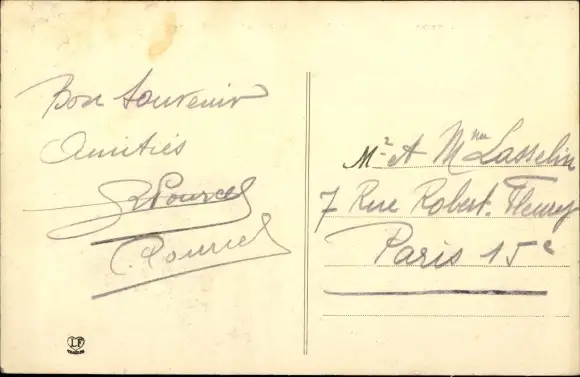 Bon Souvenir
Amitiés
Pourcel
C. Pourcel
Mr et Mme Lasselin
7 Rue Robert. Fleury
Paris 15e
LF